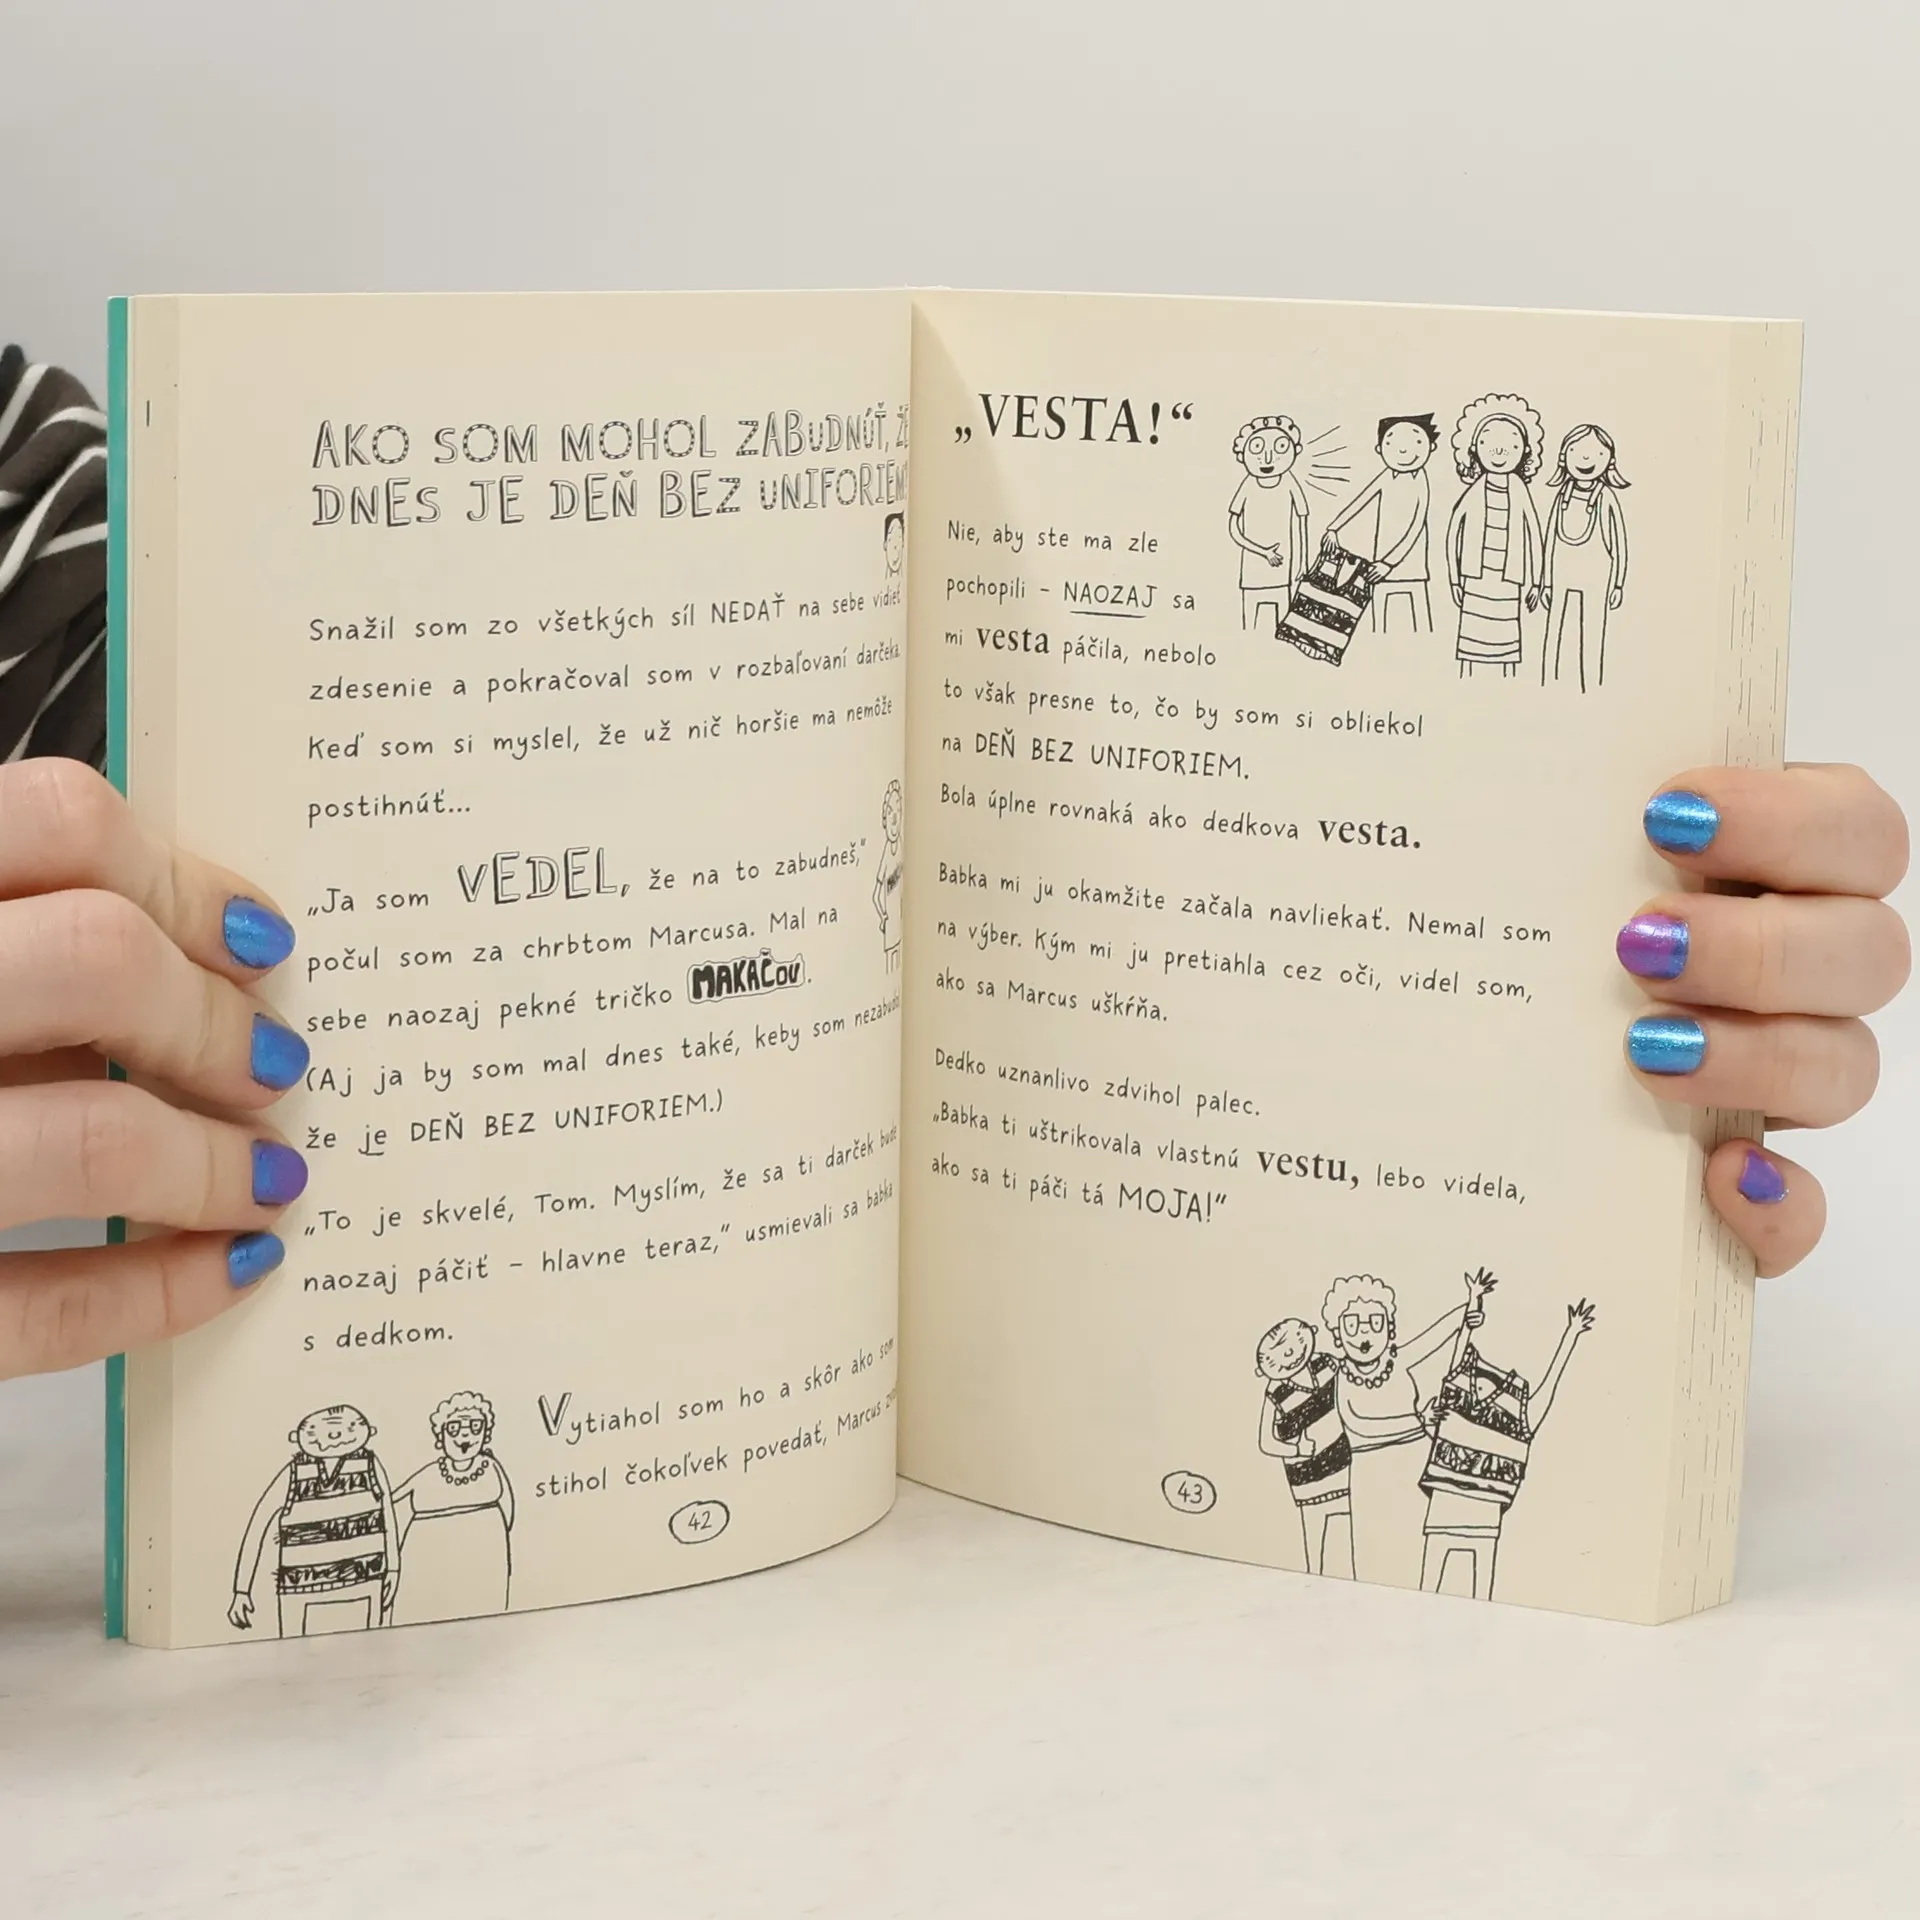 AKO SOM MOHOL ZABUDNÚŤ, ŽE
DNES JE DEŇ BEZ UNIFORIEM
Snažil som zo všetkých síl NEDAŤ na sebe vidieť
zdesenie a pokračoval som v rozbaľovaní darčeka.
Keď som si myslel, že už nič horšie ma nemôže
postihnúť...
„Ja som VEDEL, že na to zabudneš,“
počul som za chrbtom Marcusa. Mal na
sebe naozaj pekné tričko MAKAČOV.
(Aj ja by som mal dnes také, keby som
že je DEŇ BEZ UNIFORIEM.)
„To je skvelé, Tom. Myslím, že sa ti darček bude
naozaj páčiť – hlavne teraz,“ usmievali sa babka
s dedkom.
Vytiahol som ho a skôr ako som
stihol čokoľvek povedať, Marcus
42
„VESTA!“
Nie, aby ste ma zle
pochopili – NAOZAJ sa
mi vesta páčila, nebolo
to však presne to, čo by som si obliekol
na DEŇ BEZ UNIFORIEM.
Bola úplne rovnaká ako dedkova vesta.
Babka mi ju okamžite začala navliekať. Nemal som
na výber. Kým mi ju pretiahla cez oči, videl som,
ako sa Marcus uškŕňa.
Dedko uznanlivo zdvihol palec.
„Babka ti uštrikovala vlastnú vestu, lebo videla,
ako sa ti páči tá MOJA!“
43